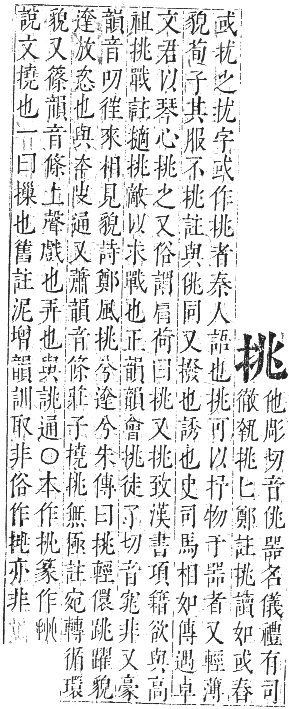 挑
他彫切音佻器名儀禮有司
徹執挑匕鄭註挑讀如或舂
或抌之抌字或作挑者秦人語也挑可以抒物于器者又輕薄
貌荀子其服不挑註與佻同又撥也誘也史司馬相如傳遇卓
文君以琴心挑之又俗謂肩荷曰挑又挑致漢書項籍欲與高
祖挑戰註擿挑敵以求戰也正韻韻會挑徒了切音窕非又豪
韻音叨徃來相見貌詩鄭風挑兮達兮朱傳曰挑輕儇跳躍貌
達放恣也與通又蕭韻音條莊子撓挑無極註宛轉循環
貌又篠韻音條上聲戲也弄也與誂通○本作挑篆作
說文撓也一曰摷也舊註泥增韻訓取非俗作亦非